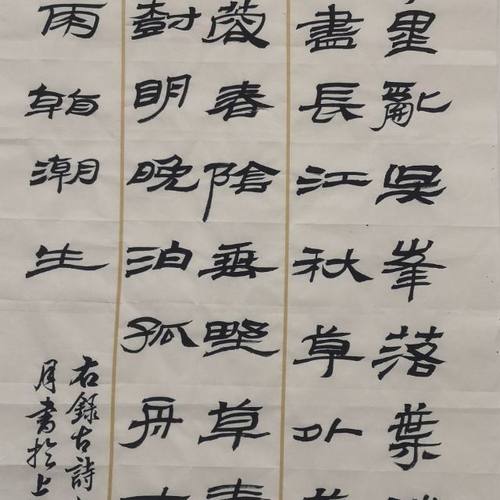 里亂吳峯落葉
盡長江秋草外
蓉春陰垂野草青
樹明晚泊孤舟古
雨看潮生
右錄古詩
月書於上